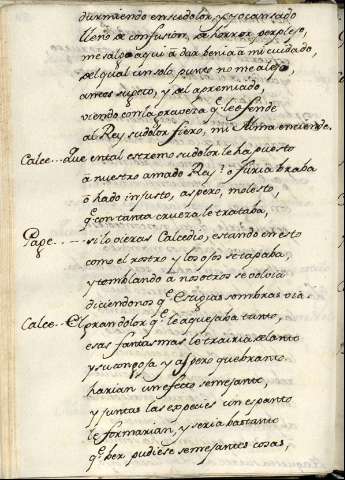 durmiendo en su dolor, y yo cansado
lleno de confusion, de horror, perplejo,
me salgo aqui a dar venia a mi cuidado,
del qual un solo punto no me alejo,
antes sugeto, y del apremiado,
viendo con la graveza qe. le ofende
al Rey su dolor fiero, mi Alma enciende.
Calce... Que en tal estremo su dolor le ha puesto
â nuestro amado Rey? ô furia braba
ô hado injusto, aspero, molesto,
qe. con tanta crueza le trataba,
Page... si lo vieras Calcedio, estando en esto
como el rostro y los ojos se tapaba,
y temblando a nosotros se volvia
diciendonos qe. Estigias sombras via.
Calce.- El gran dolor qe. le aquejaba tanto,
esas fantasmas lo trairia delante
y su congoja y aspero quebranto
harian un efecto semejante,
y juntas las especies un espanto
le formarian, y seria bastante
qe. ver pudiese semejantes cosas,